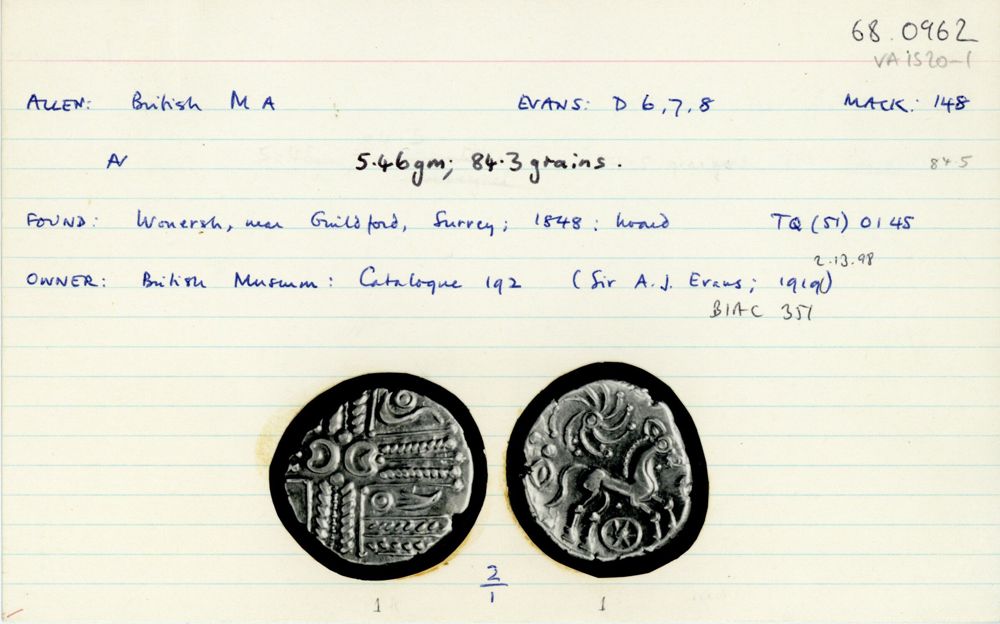 68.0962
VA 1520-1
ALLEN: British M A EVANS: D 6,7,8 MACK: 148
AV 5.46gm; 84.3 grains. 84.5
FOUND: Wonersh, near Guildford, Surrey; 1848: hoard TQ (51) 0145
2.13.98
OWNER: British Museum: Catalogue 192 (Sir A.J. Evans; 1919)
BMC 351
2
1
1 1